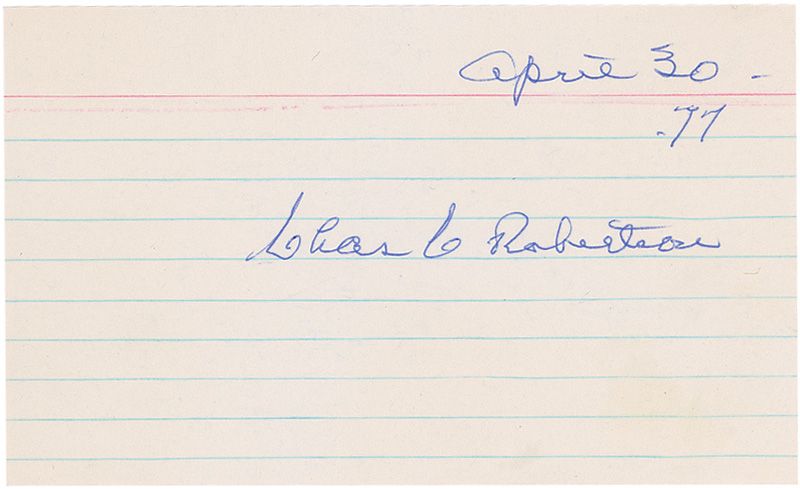 April 30 -
-77
Chas C Robertson